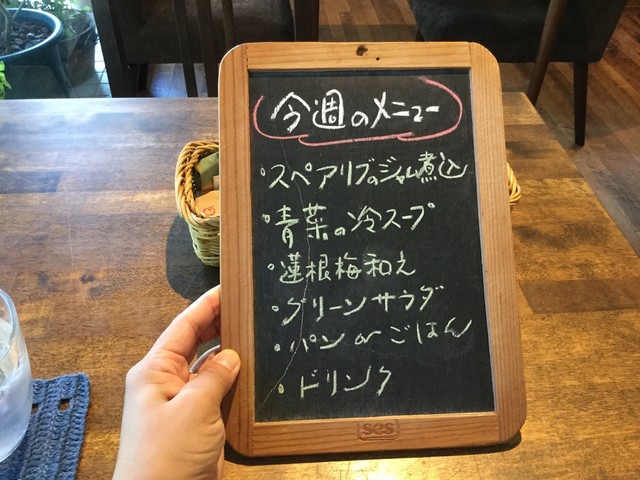 今週のメニュー
・スペアリブのジャム煮込
・青菜の冷スープ
・蓮根梅和え
・グリーンサラダ
・パン or ごはん
・ドリンク
ses